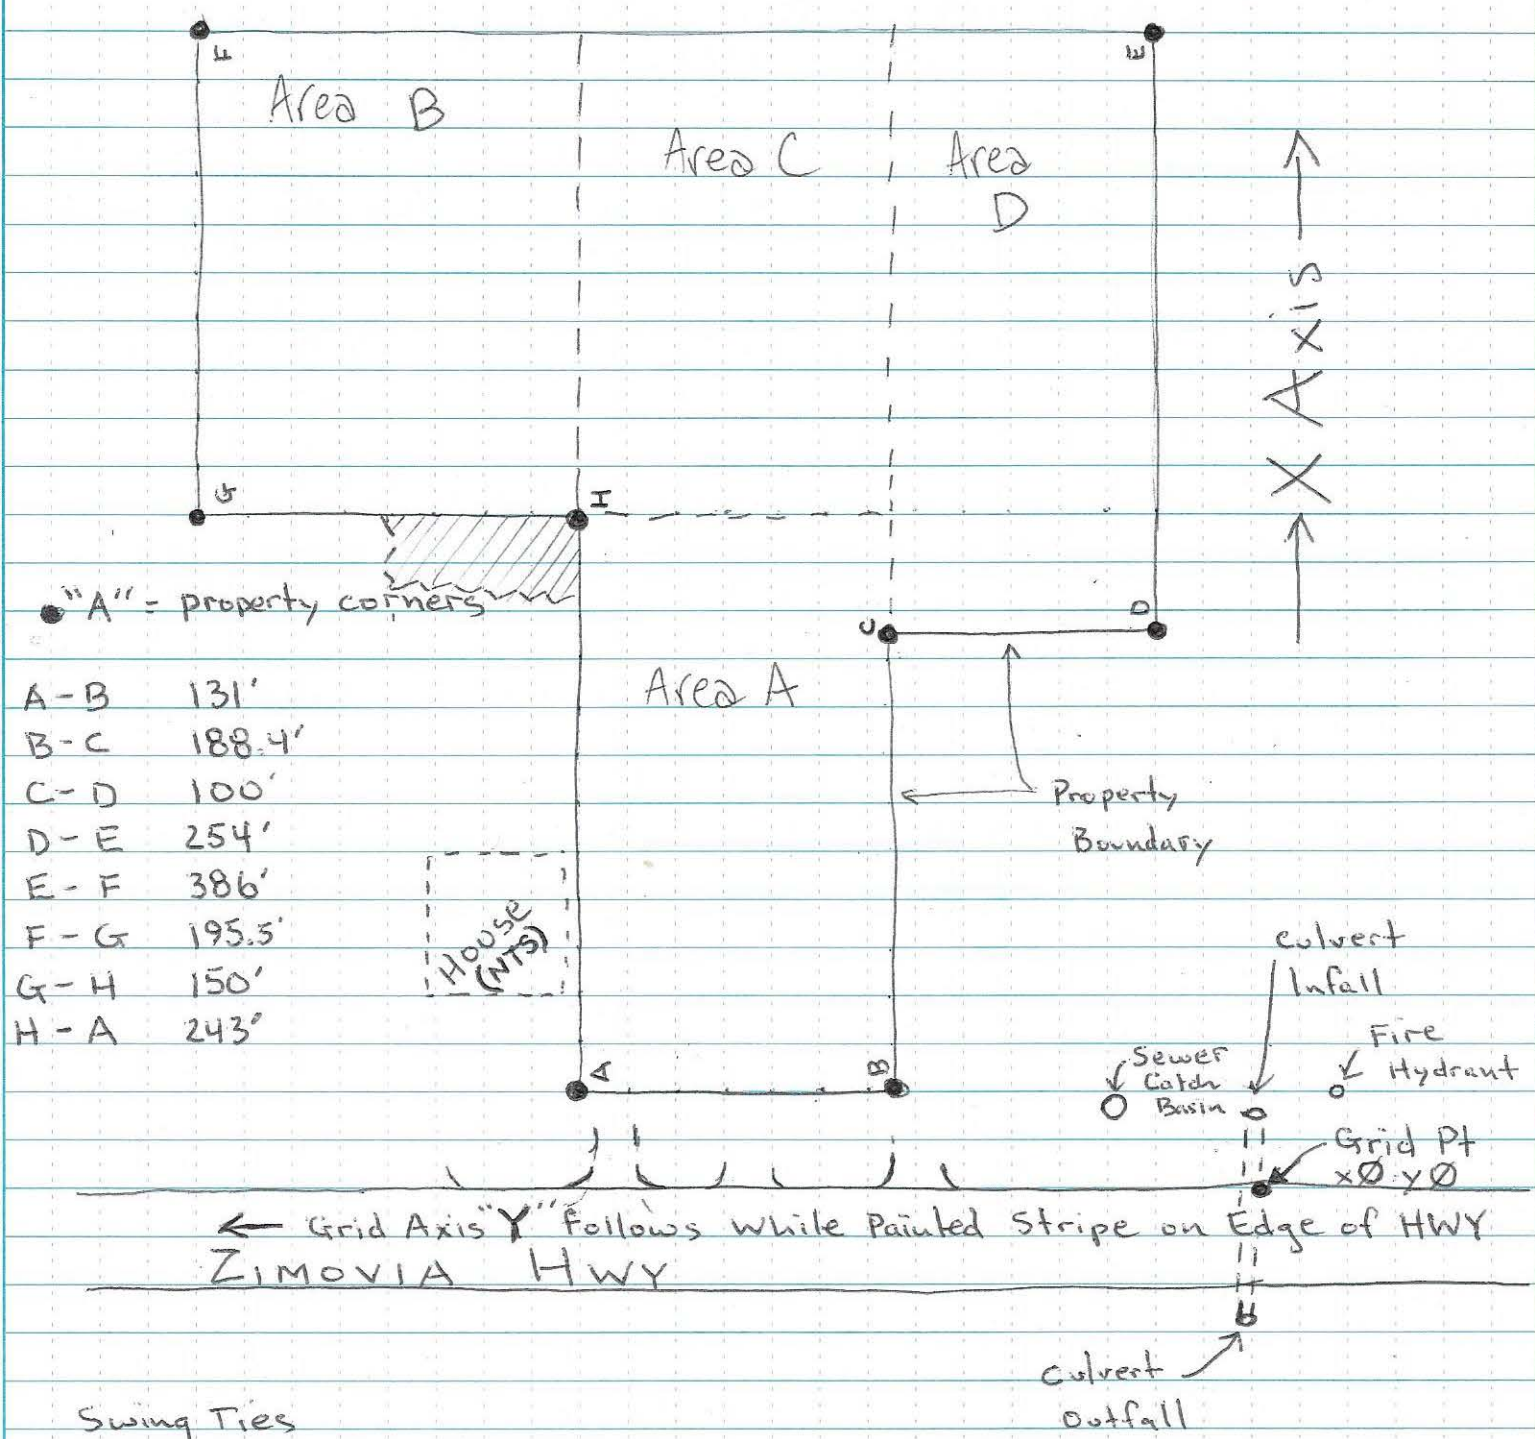 F
E
Area B
Area C
Area
D
X Axis
G
I
"A" = property corners
C
D
A-B 131'
B-C 188.4'
C-D 100'
D-E 254'
E-F 386'
F-G 195.5'
G-H 150'
H-A 243'
Area A
Property
Boundary
House
(NTS)
Culvert
Infall
Fire
Hydrant
Sewer
Catch
Basin
A
B
Grid Pt
xØ yØ
Grid Axis "Y" follows While Painted Stripe on Edge of HWY
ZIMOVIA HWY
Culvert
Outfall
Swing Ties